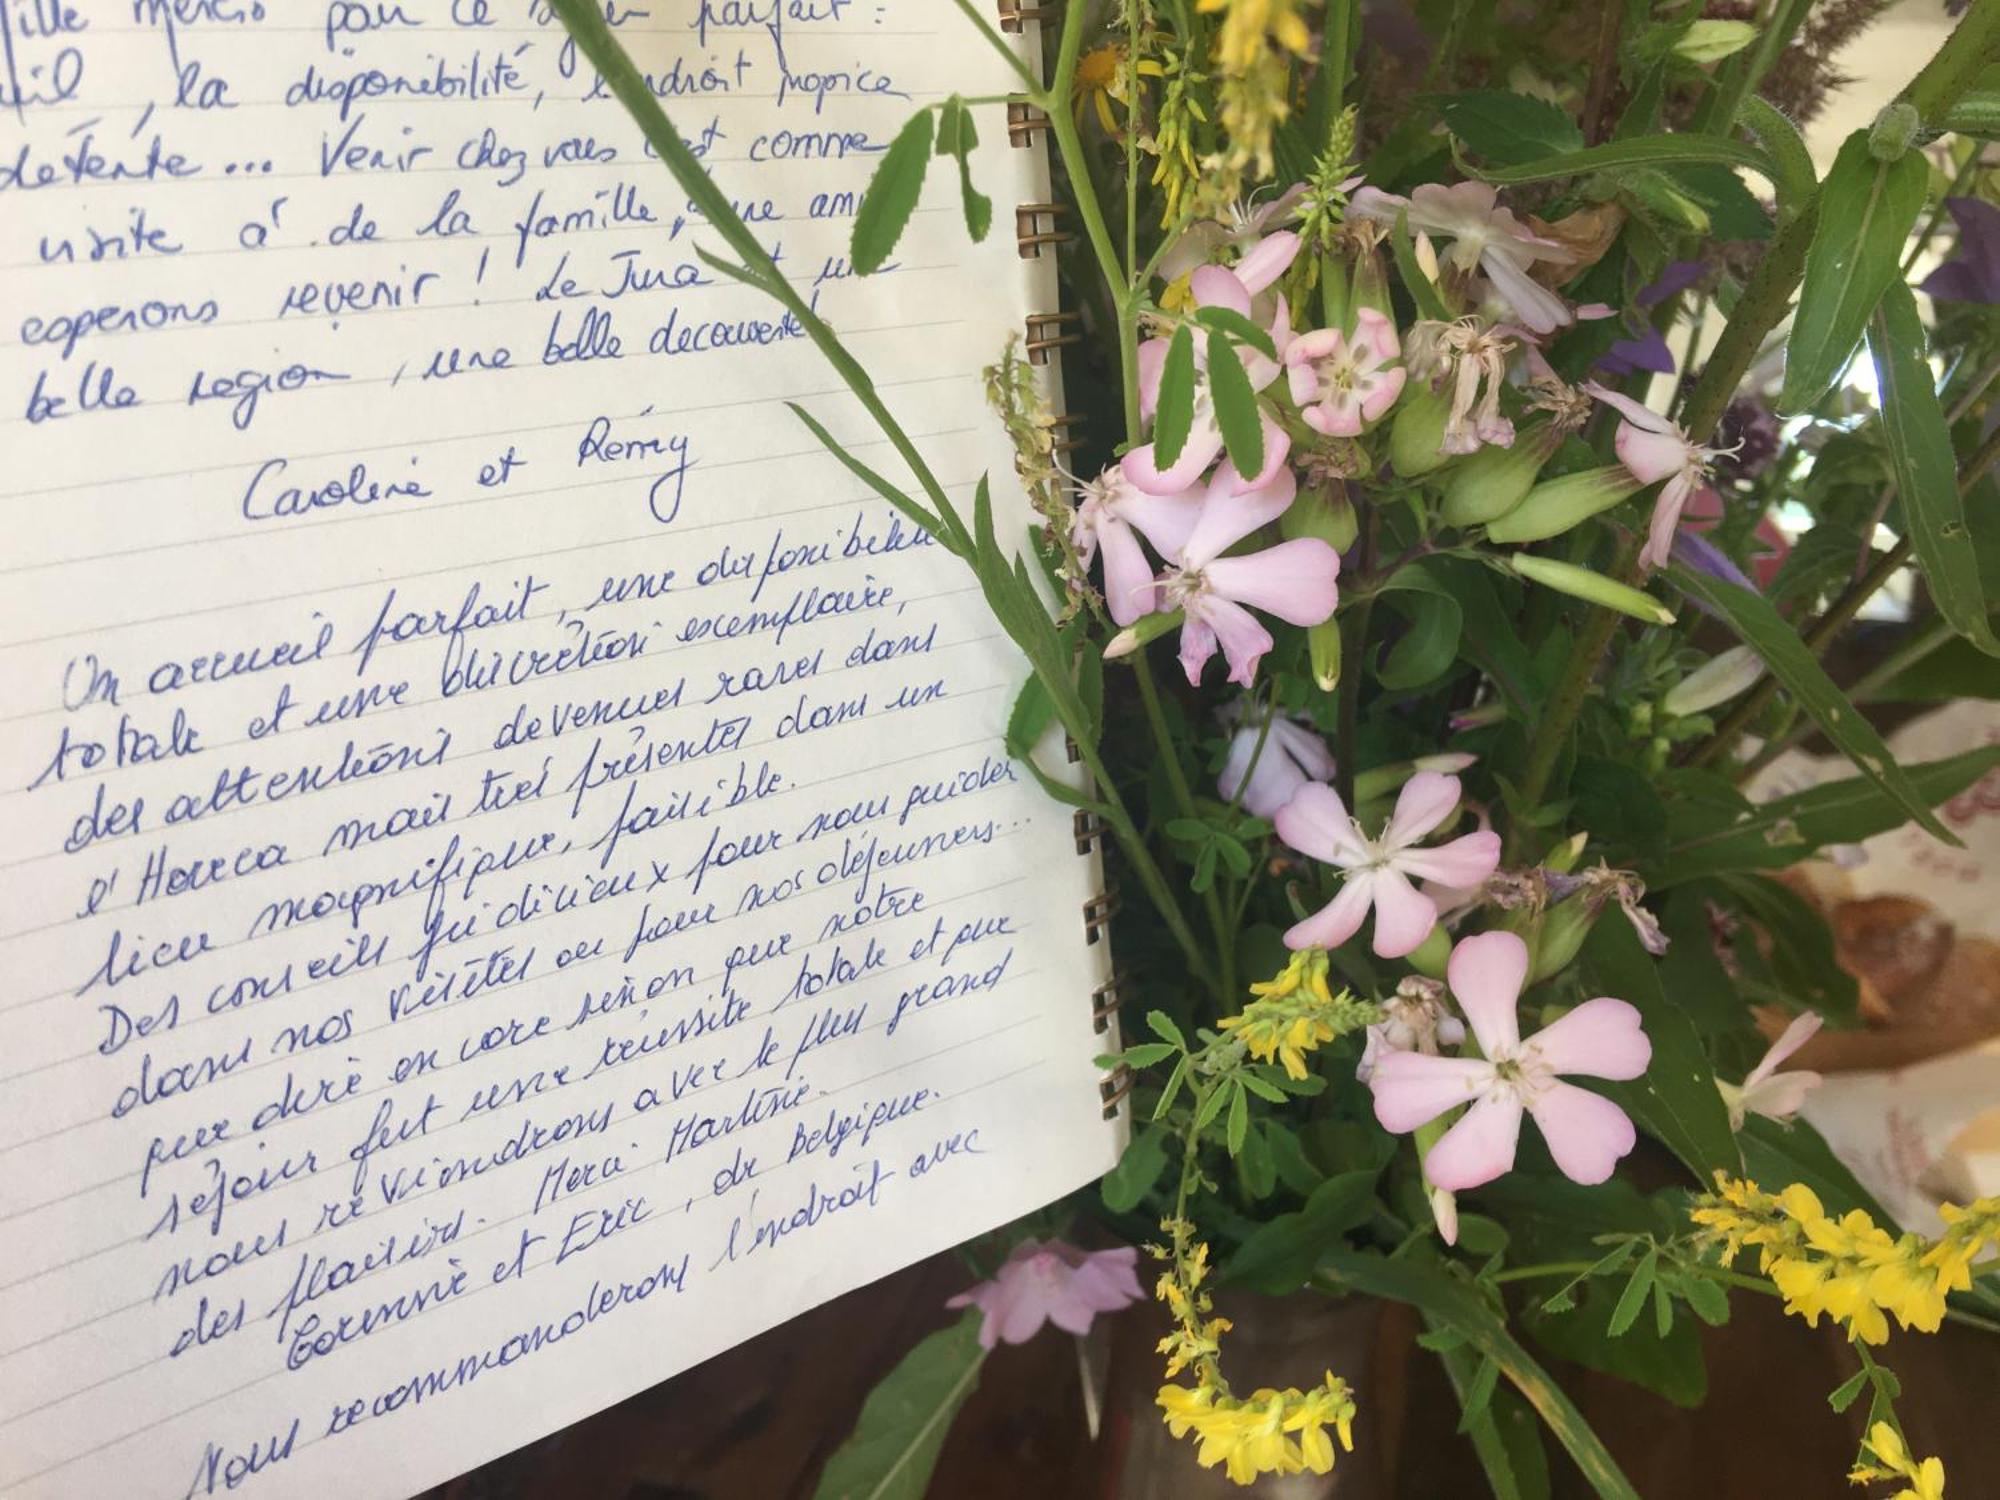 Mille mercis pour ce séjour parfait :
, la disponibilité, l'endroit propice
détente... Venir chez vous c'est comme
visite à de la famille, à une
esperons revenir ! Le Jura est une
belle region, une belle decouverte!
Caroline et Rémy
Un accueil parfait, une disponibilité
totale et une discrétion exemplaire,
des attentions devenues rares dans
l'Horeca mais très présentes dans un
lieu magnifique, paisible.
Des conseils judicieux pour nous guider
dans nos visites ou pour nos déjeuners...
que dire encore sinon que notre
séjour fut une réussite totale et que
nous reviendrons avec le plus grand
des plaisirs. Merci Martine.
Corinne et Eric, de Belgique.
Nous recommanderons l'endroit avec